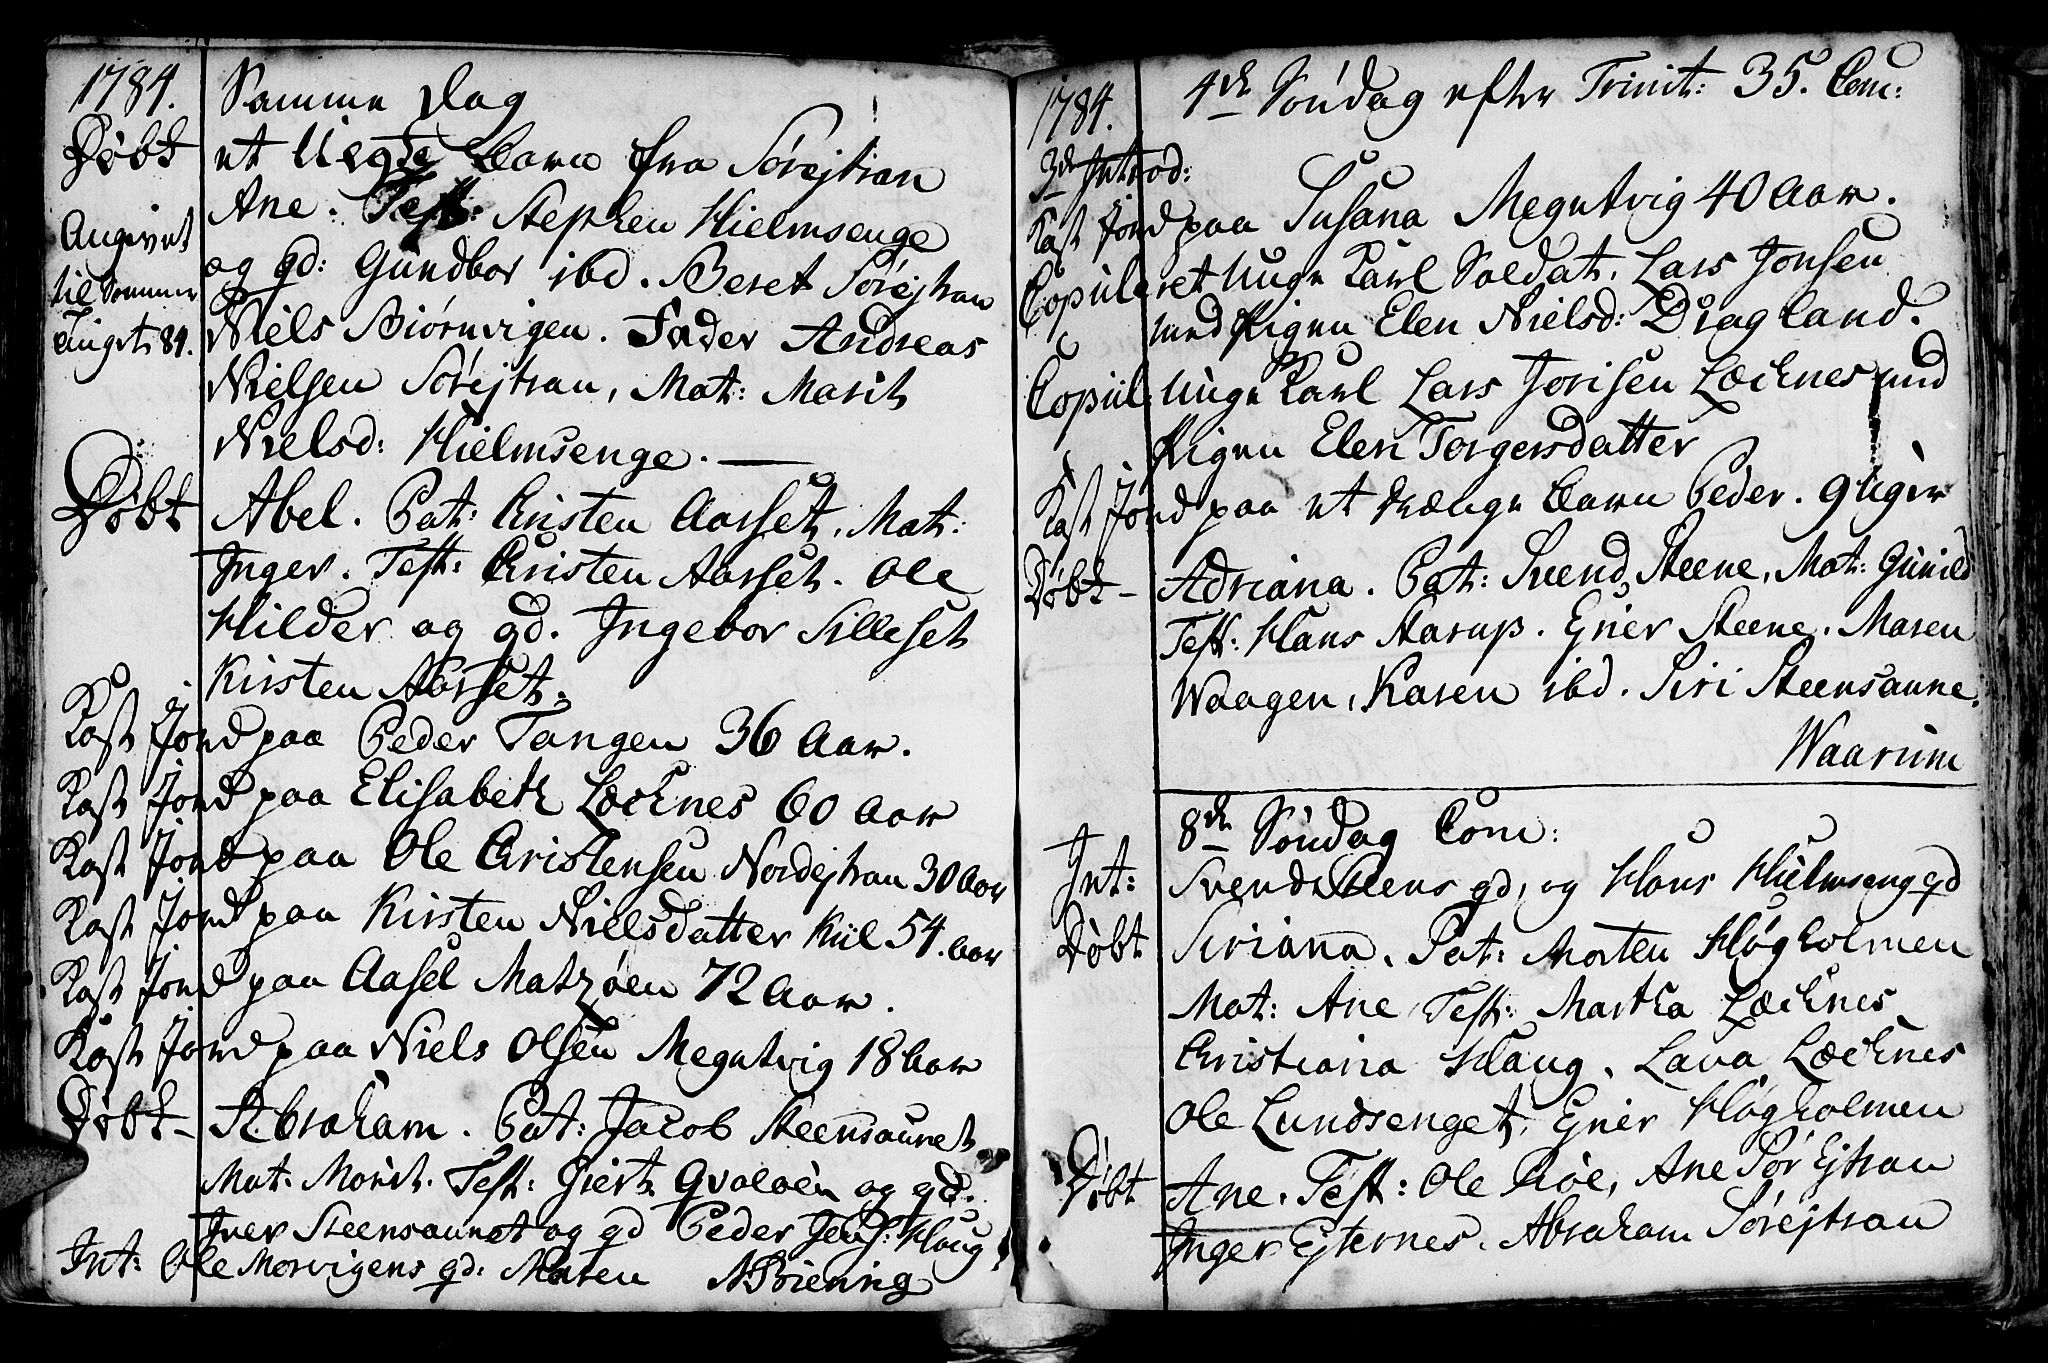 1784. Samme Dag
Døbt et Uægte barn fra Sørejtran
Ane. Test: Stephen Hielmsenge
Angivet og gd: Gundbor ibd. Beret Sørejtran
til Sommer Niels Biörnvigen. Fader Andreas
Tinget 84. Nielsen Sørejtran, Mat: Marit
Nielsd: Hielmsenge.
Døbt Abel. Pat: Cristen Aasset, Mat:
Inger. Test: Cristen Aasset. Ole
Hilder og gd. Ingebor Silleset
Kirsten Aasset.
Kast Jord paa Peder Tangen 36 Aar.
Kast Jord paa Elisabeth Lœchnes 60 Aar
Kast Jord paa Ole Cristensen Nordejtran 30 Aar
Kast Jord paa Kirsten Nielsdatter Kiil 54. Aar
Kast Jord paa Aasel Matzøen 72 Aar.
Kast Jord paa Niels Olsen Megutvig 18 Aar
Døbt Abraham. Pat: Jacob Steensaunet
Mat: Marit. Test: Giert Qvaløen og gd.
Iver Steensaunet og gd Peder Jens: Haug
Int: Ole Morvigens gd: Maren
1784. 4de Søndag efter Trinit: 35. Com:
3de Introd:
Kast Jord paa Susana Megutvig 40 Aar.
Copuleret Unge Karl Soldat, Lars Jonsen
med Pigen Elen Nielsd: Dragland.
Copul: Unge Karl Lars Jonsen Lœchnes med
Pigen Elen Torgersdatter
Kast Jord paa et Drænge barn Peder. 9 Uger
Døbt Adriana. Pat: Svend Steene, Mat: Gunild
Test: Hans Aarup. Ejner Steene. Maren
Waagen, Karen ibd. Siri Steensaune.
Waarum
8de Søndag Com:
Int: Svend Steens gd, og Hans Hielmseng gd
Døbt Siriana. Pat: Morten Høgholmen
Mat: Ane Test: Martha Lœchnes
Cristiana Haug, Lava Lœchnes
Ole Lundsenget, Ejner Høgholmen
Døbt Ane. Test: Ole Røe, Ane Sør Ejtran
Inger Ejternes, Abraham Sørejtran